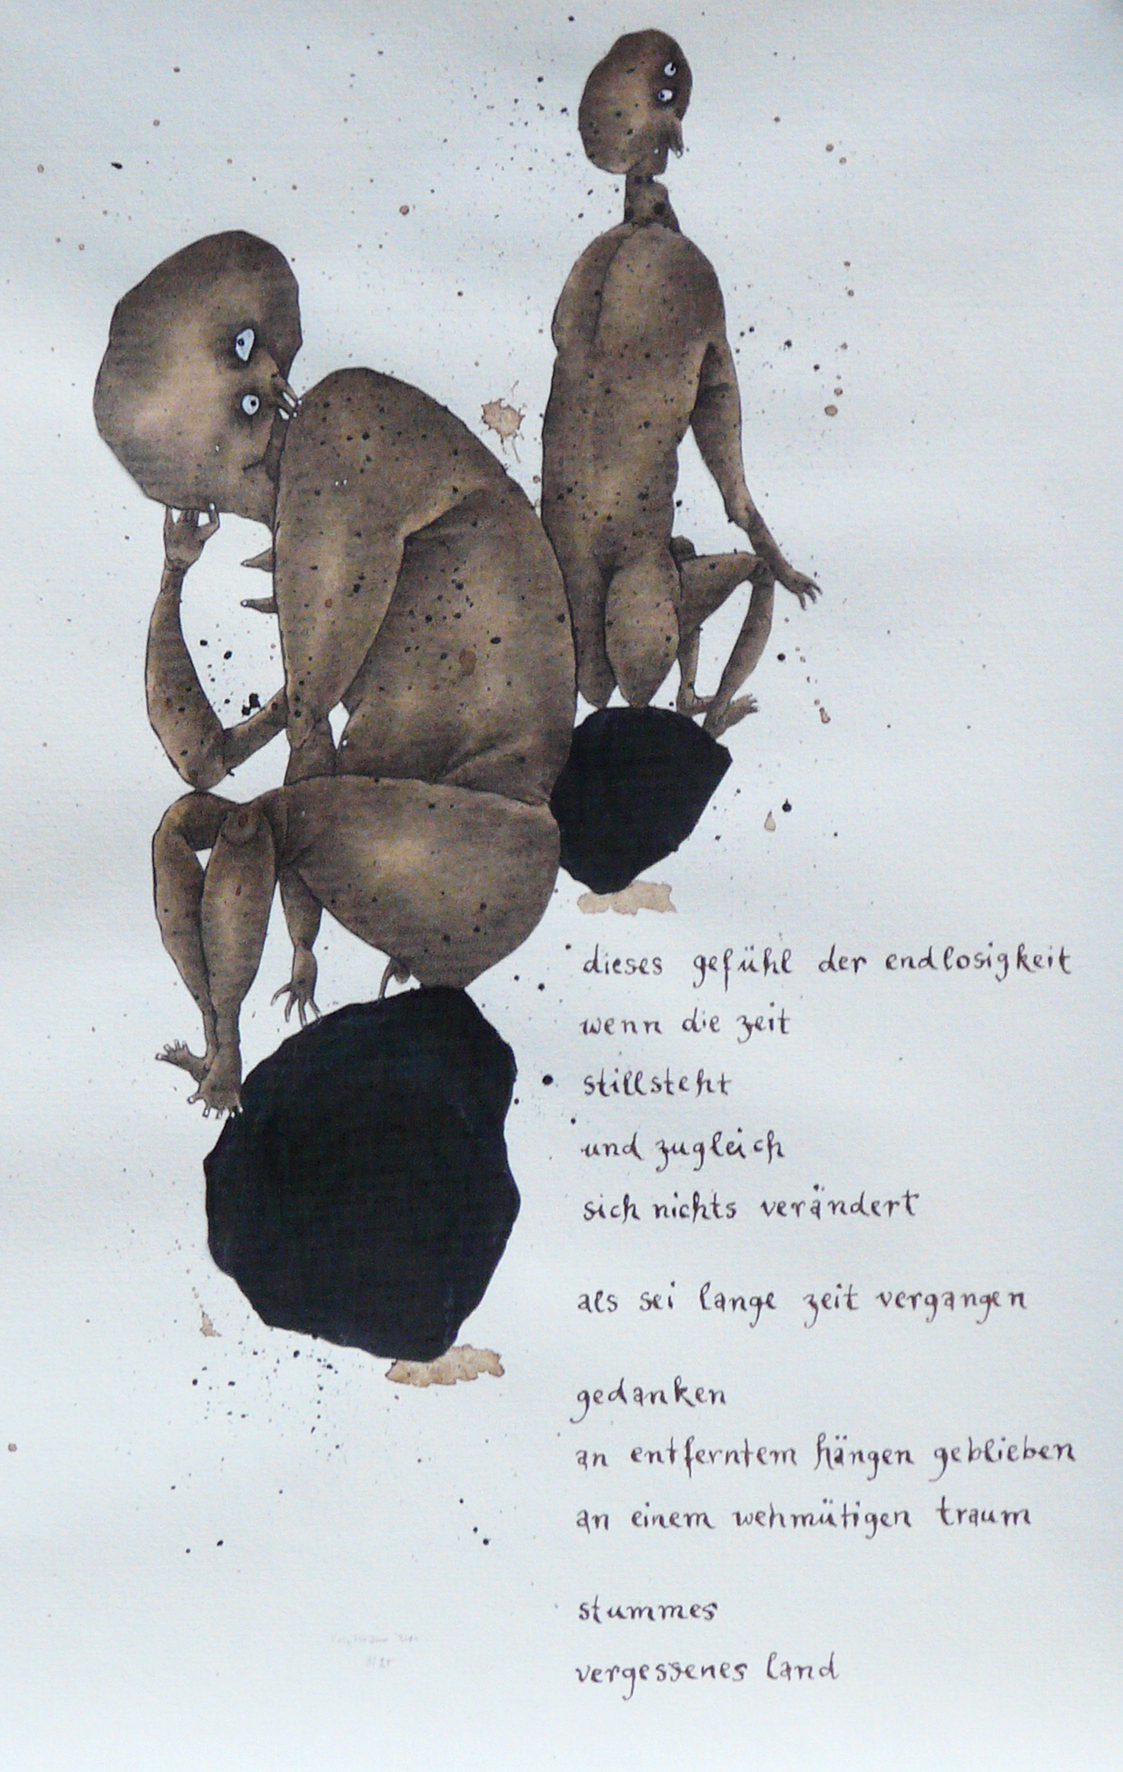 dieses gefühl der endlosigkeit
wenn die zeit
stillsteht
und zugleich
sich nichts verändert
als sei lange zeit vergangen
gedanken
an entferntem hängen geblieben
an einem wehmütigen traum
stummes
vergessenes land